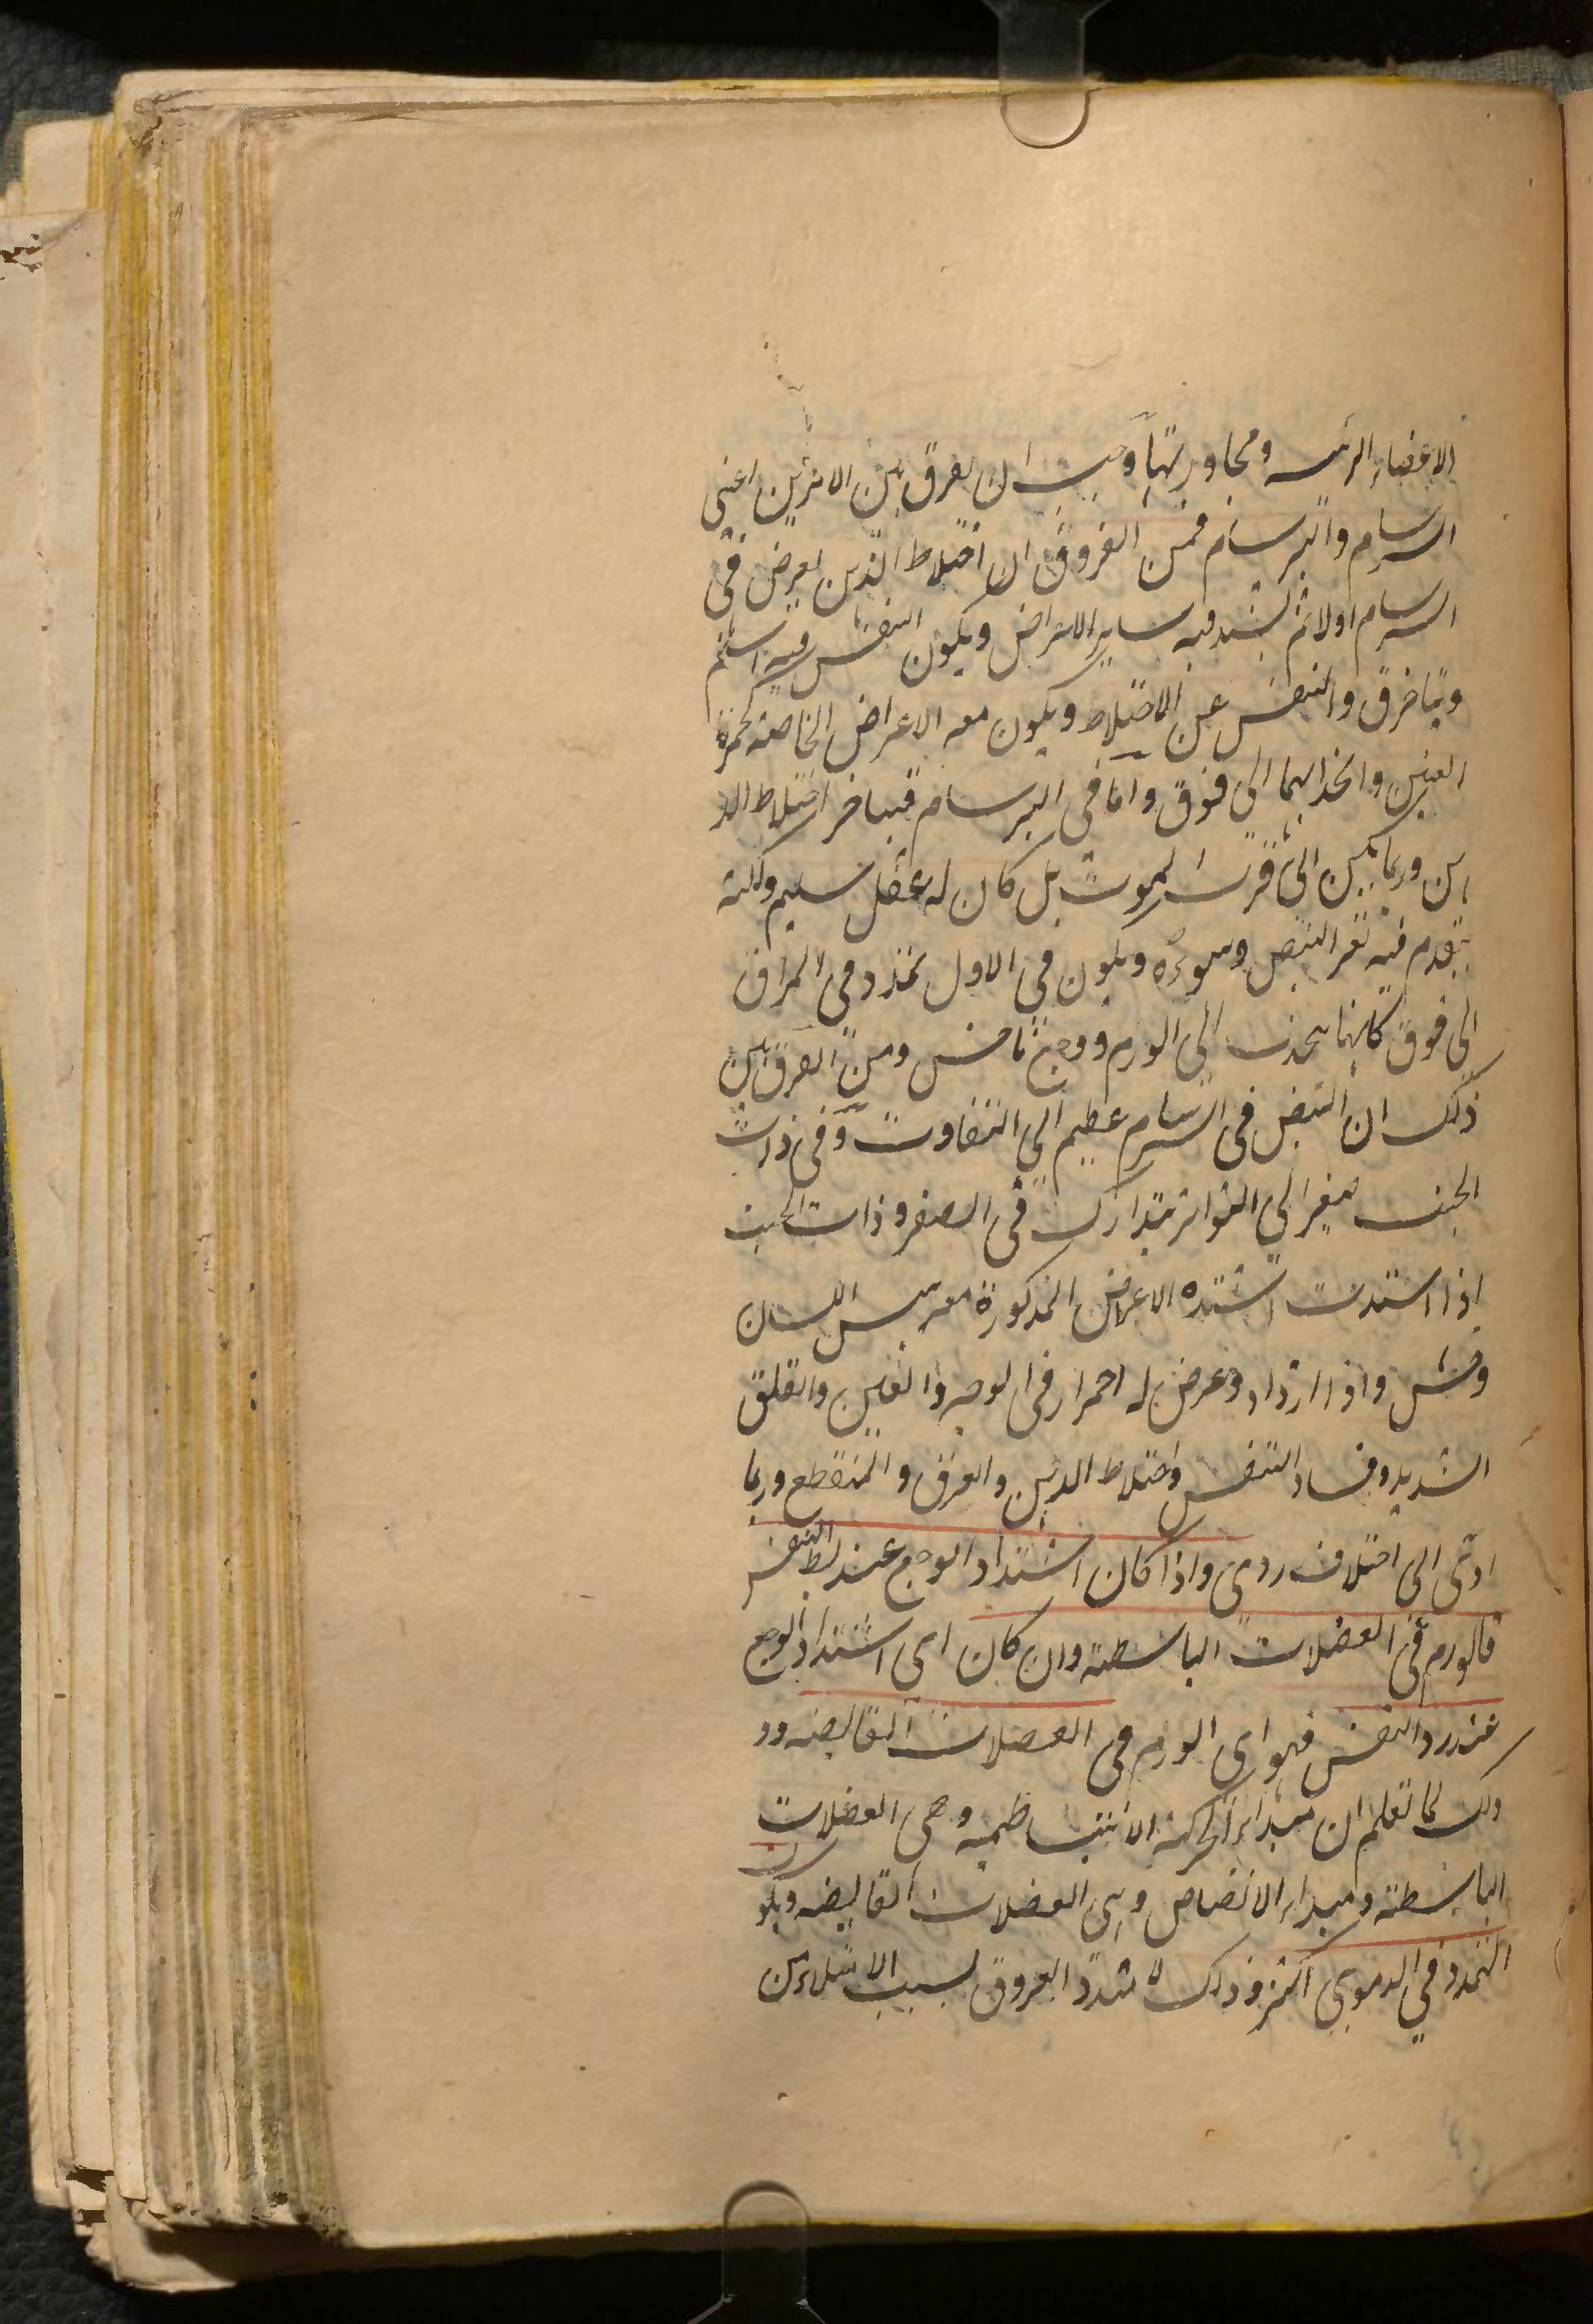 الاعضاء الرئسه ومجاورتها وجب ان يفرق بين الامرين اعنى
السرسام والبرسام فمن الفروق ان اختلاط الذهن يعرض فى
السرسام اولا ثم يشتد فيه ساير الاعراض ويكون النفس فيه اسلم
ويتاخر والتنفس عن الاختلاط ويكون معه الاعراض الخاصة كحمرة
العين وانخذابهما الى فوق واما فى البرسام فيتاخر اختلاط الذ
هن وربما الى قرب الموت بل كان له عقل سليم ولكنه
يتقدم فيه تغير النبض وسوءه ويكون فى الاول تمدد فى المراق
الى فوق كانها ينجذب الى الورم ووجع ناخس ومن الفرق بين
ذلك ان النبض فى السرسام عظيم الى التفاوت وفى ذات
الجنب صغير الى التواتر يتدارك فى الصغر وذات الجنب
اذا اشتدت اشتده الاعراض المذكورة مع يبس اللسان
وخشن واذا ازداد وعرض له احمرار فى الوجه والعين والقلق
الشديد وفساد التنفس واختلاط الذهن والعرق والمنقطع وربما
ادى الى اختلاف ردى واذا كان اشتداد الوجع عند بسط النفس
فالورم فى العضلات الباسطة وان كان اى اشتداد الوجع
عند رد النفس فهو اى الورم فى العضلات القابضه وذ
ذلك لما تعلم ان مبداء الحركة الانبساطيه وهى العضلات
الباسطة ومبداء الانقباض وهى العضلات القابضه ويكون
التمدد فى الدموى اكثر وذلك لا تمدد العروق بسبب الامتلاء من